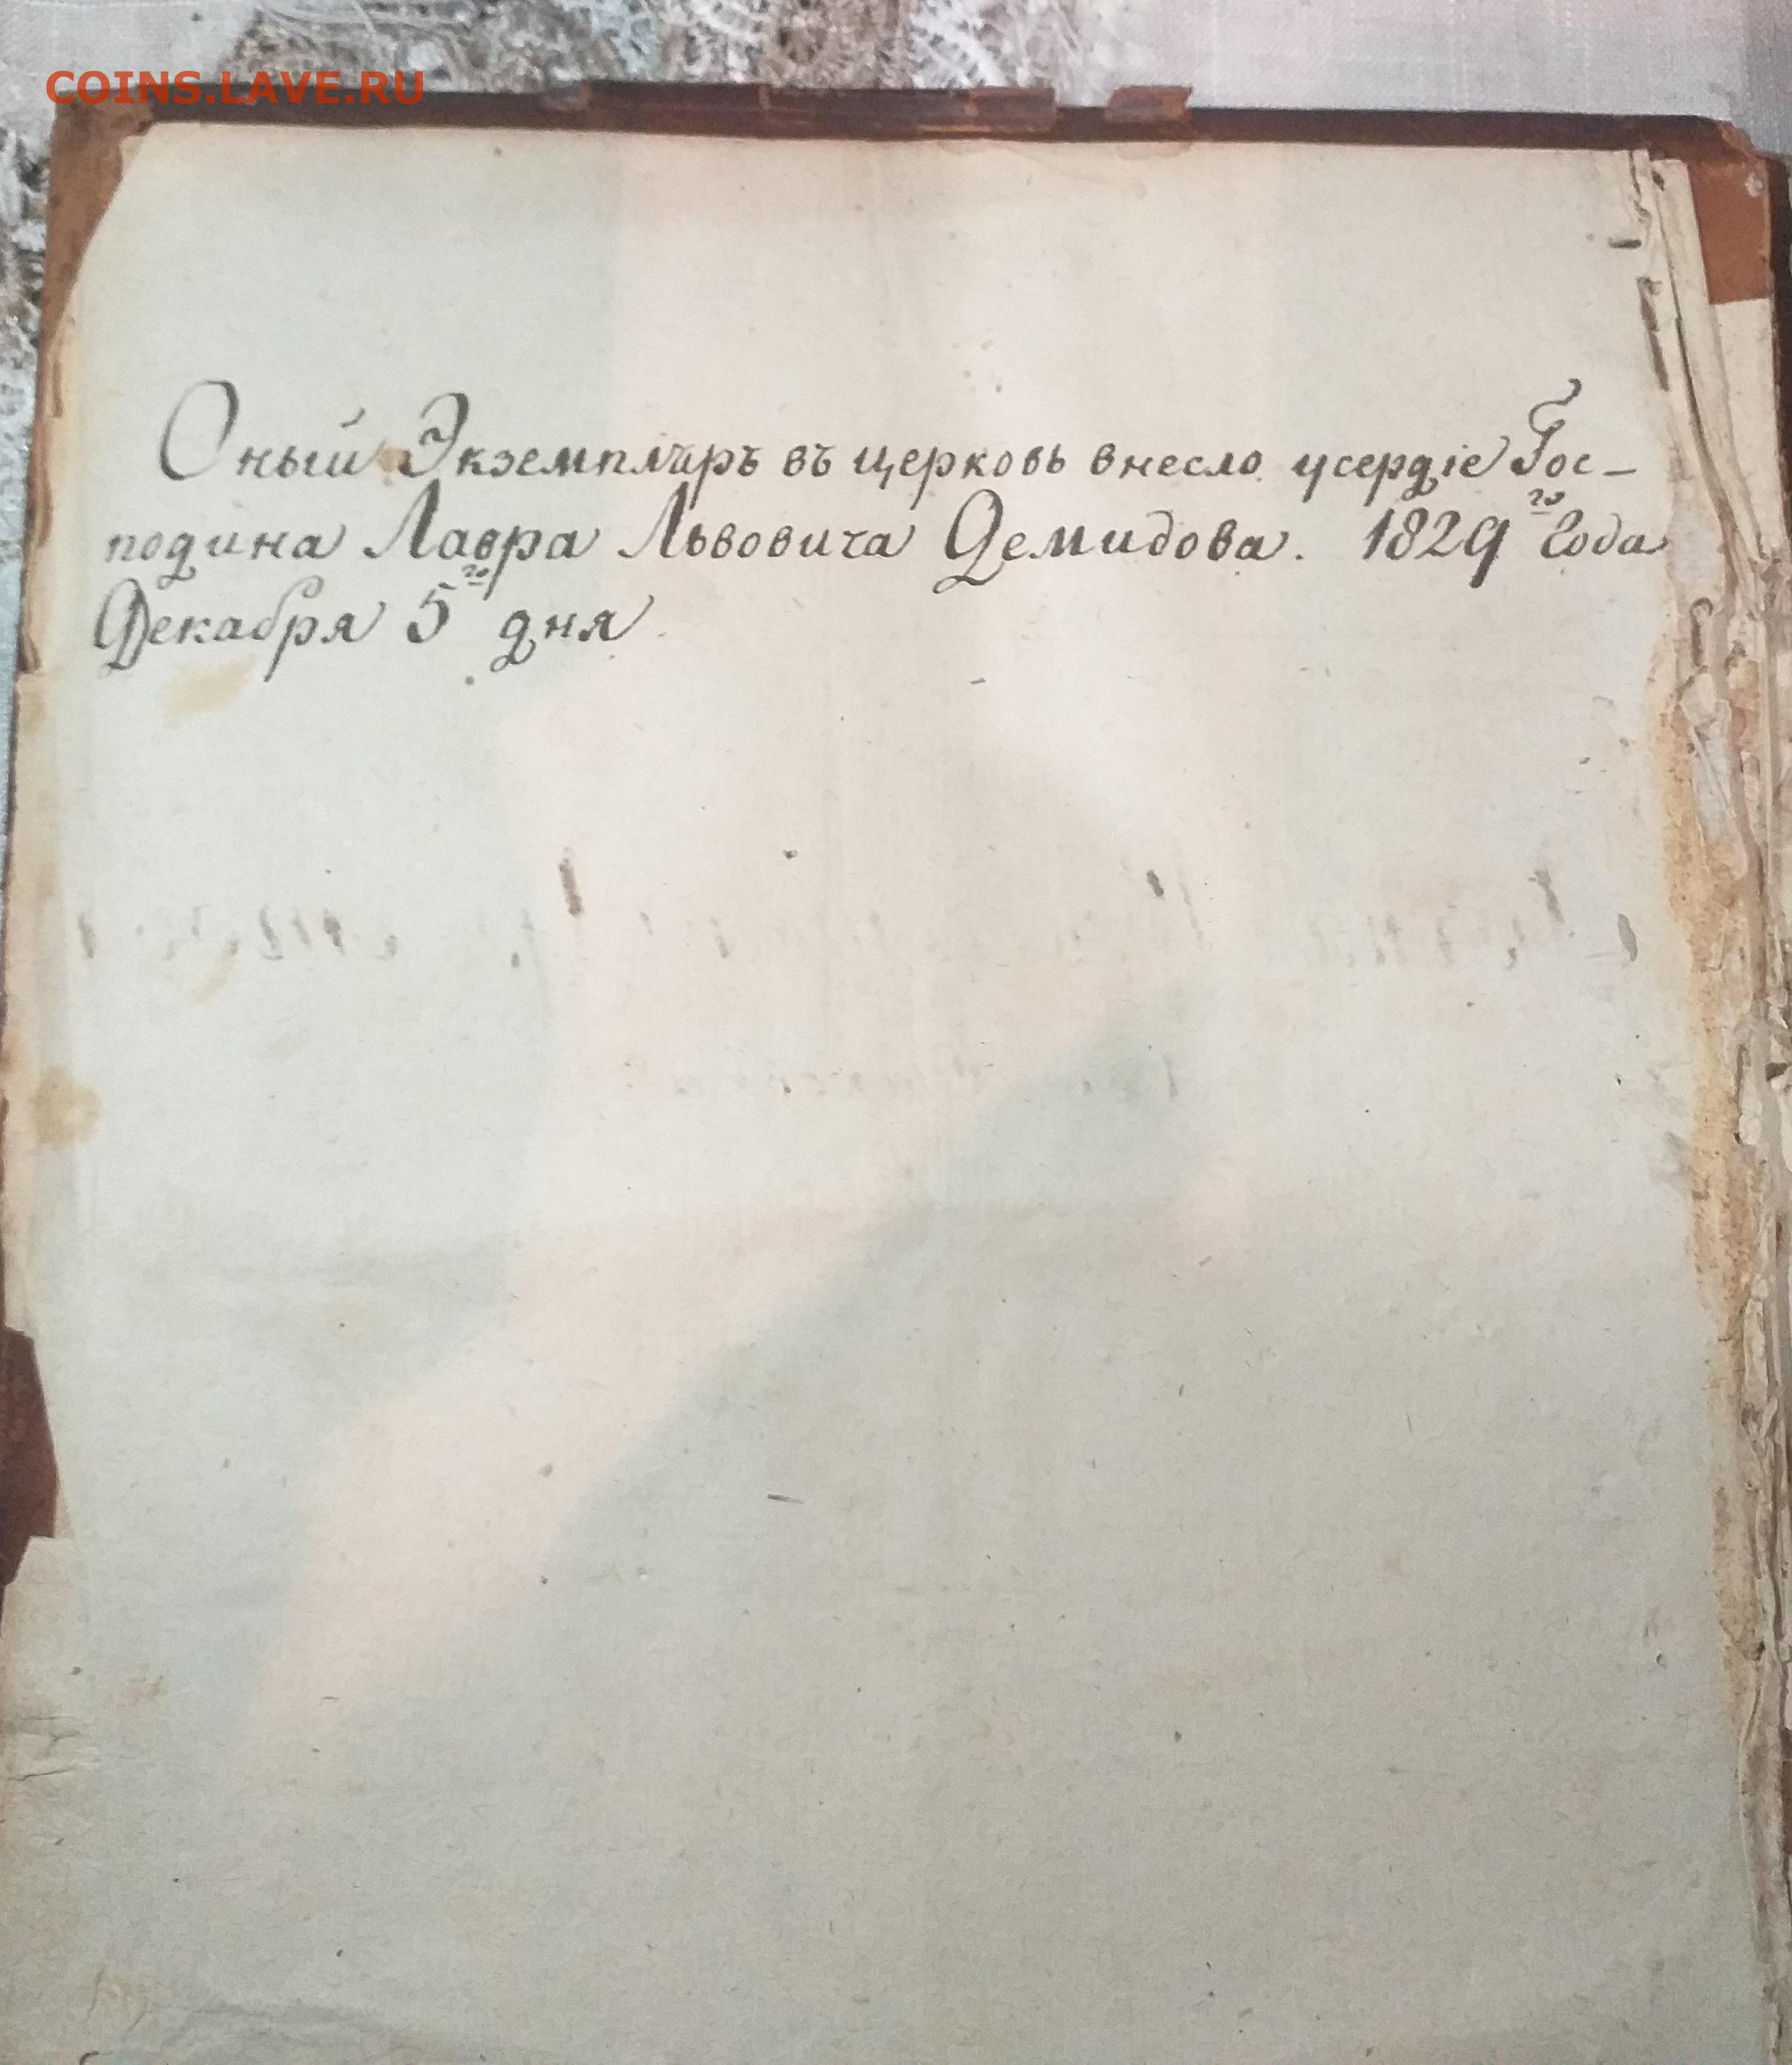 COINS.LAVE.RU
Оный Экземпляръ въ церковь внесло усердіе Гос-
подина Лавра Львовича Демидова. 1829го Года
Декабря 5го дня